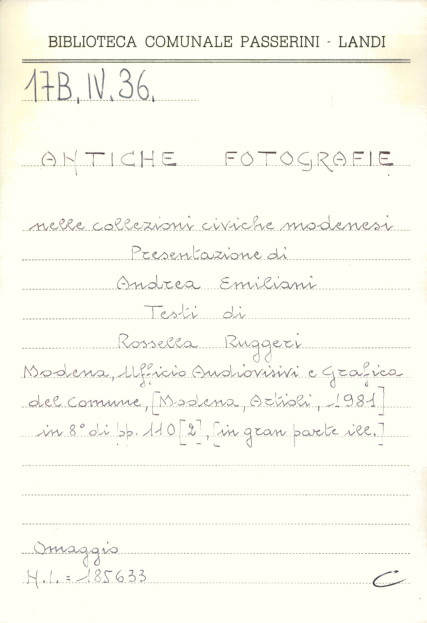 BIBLIOTECA COMUNALE PASSERINI - LANDI
17B.IV.36.
ANTICHE FOTOGRAFIE
nelle collezioni civiche modenesi
Presentazione di
Andrea Emiliani
Testi di
Rossella Ruggeri
Modena, Ufficio Audiovisivi e Grafica
del Comune, [Modena, Artioli, 1981]
in 8° di pp. 110[2], [in gran parte ill.]
Omaggio
N.I. = 185633
C